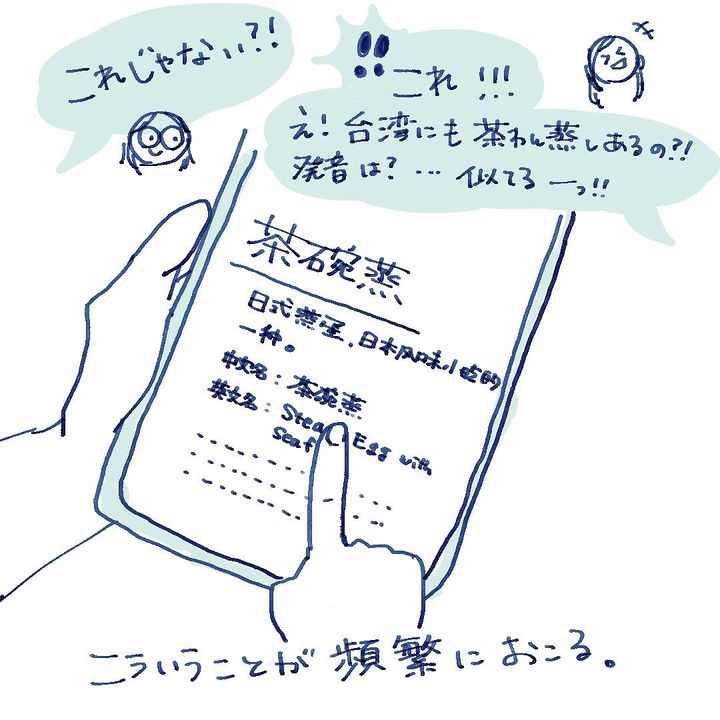 これじゃない?!
!! これ!!!
え!台湾にも茶わん蒸しあるの?!
発音は?… 似てるーっ!!
茶碗蒸
日式蒸蛋,日本風味小吃的
一种。
中文名:茶碗蒸
英文名:Stea Egg with
Seaf
こういうことが頻繁におこる。